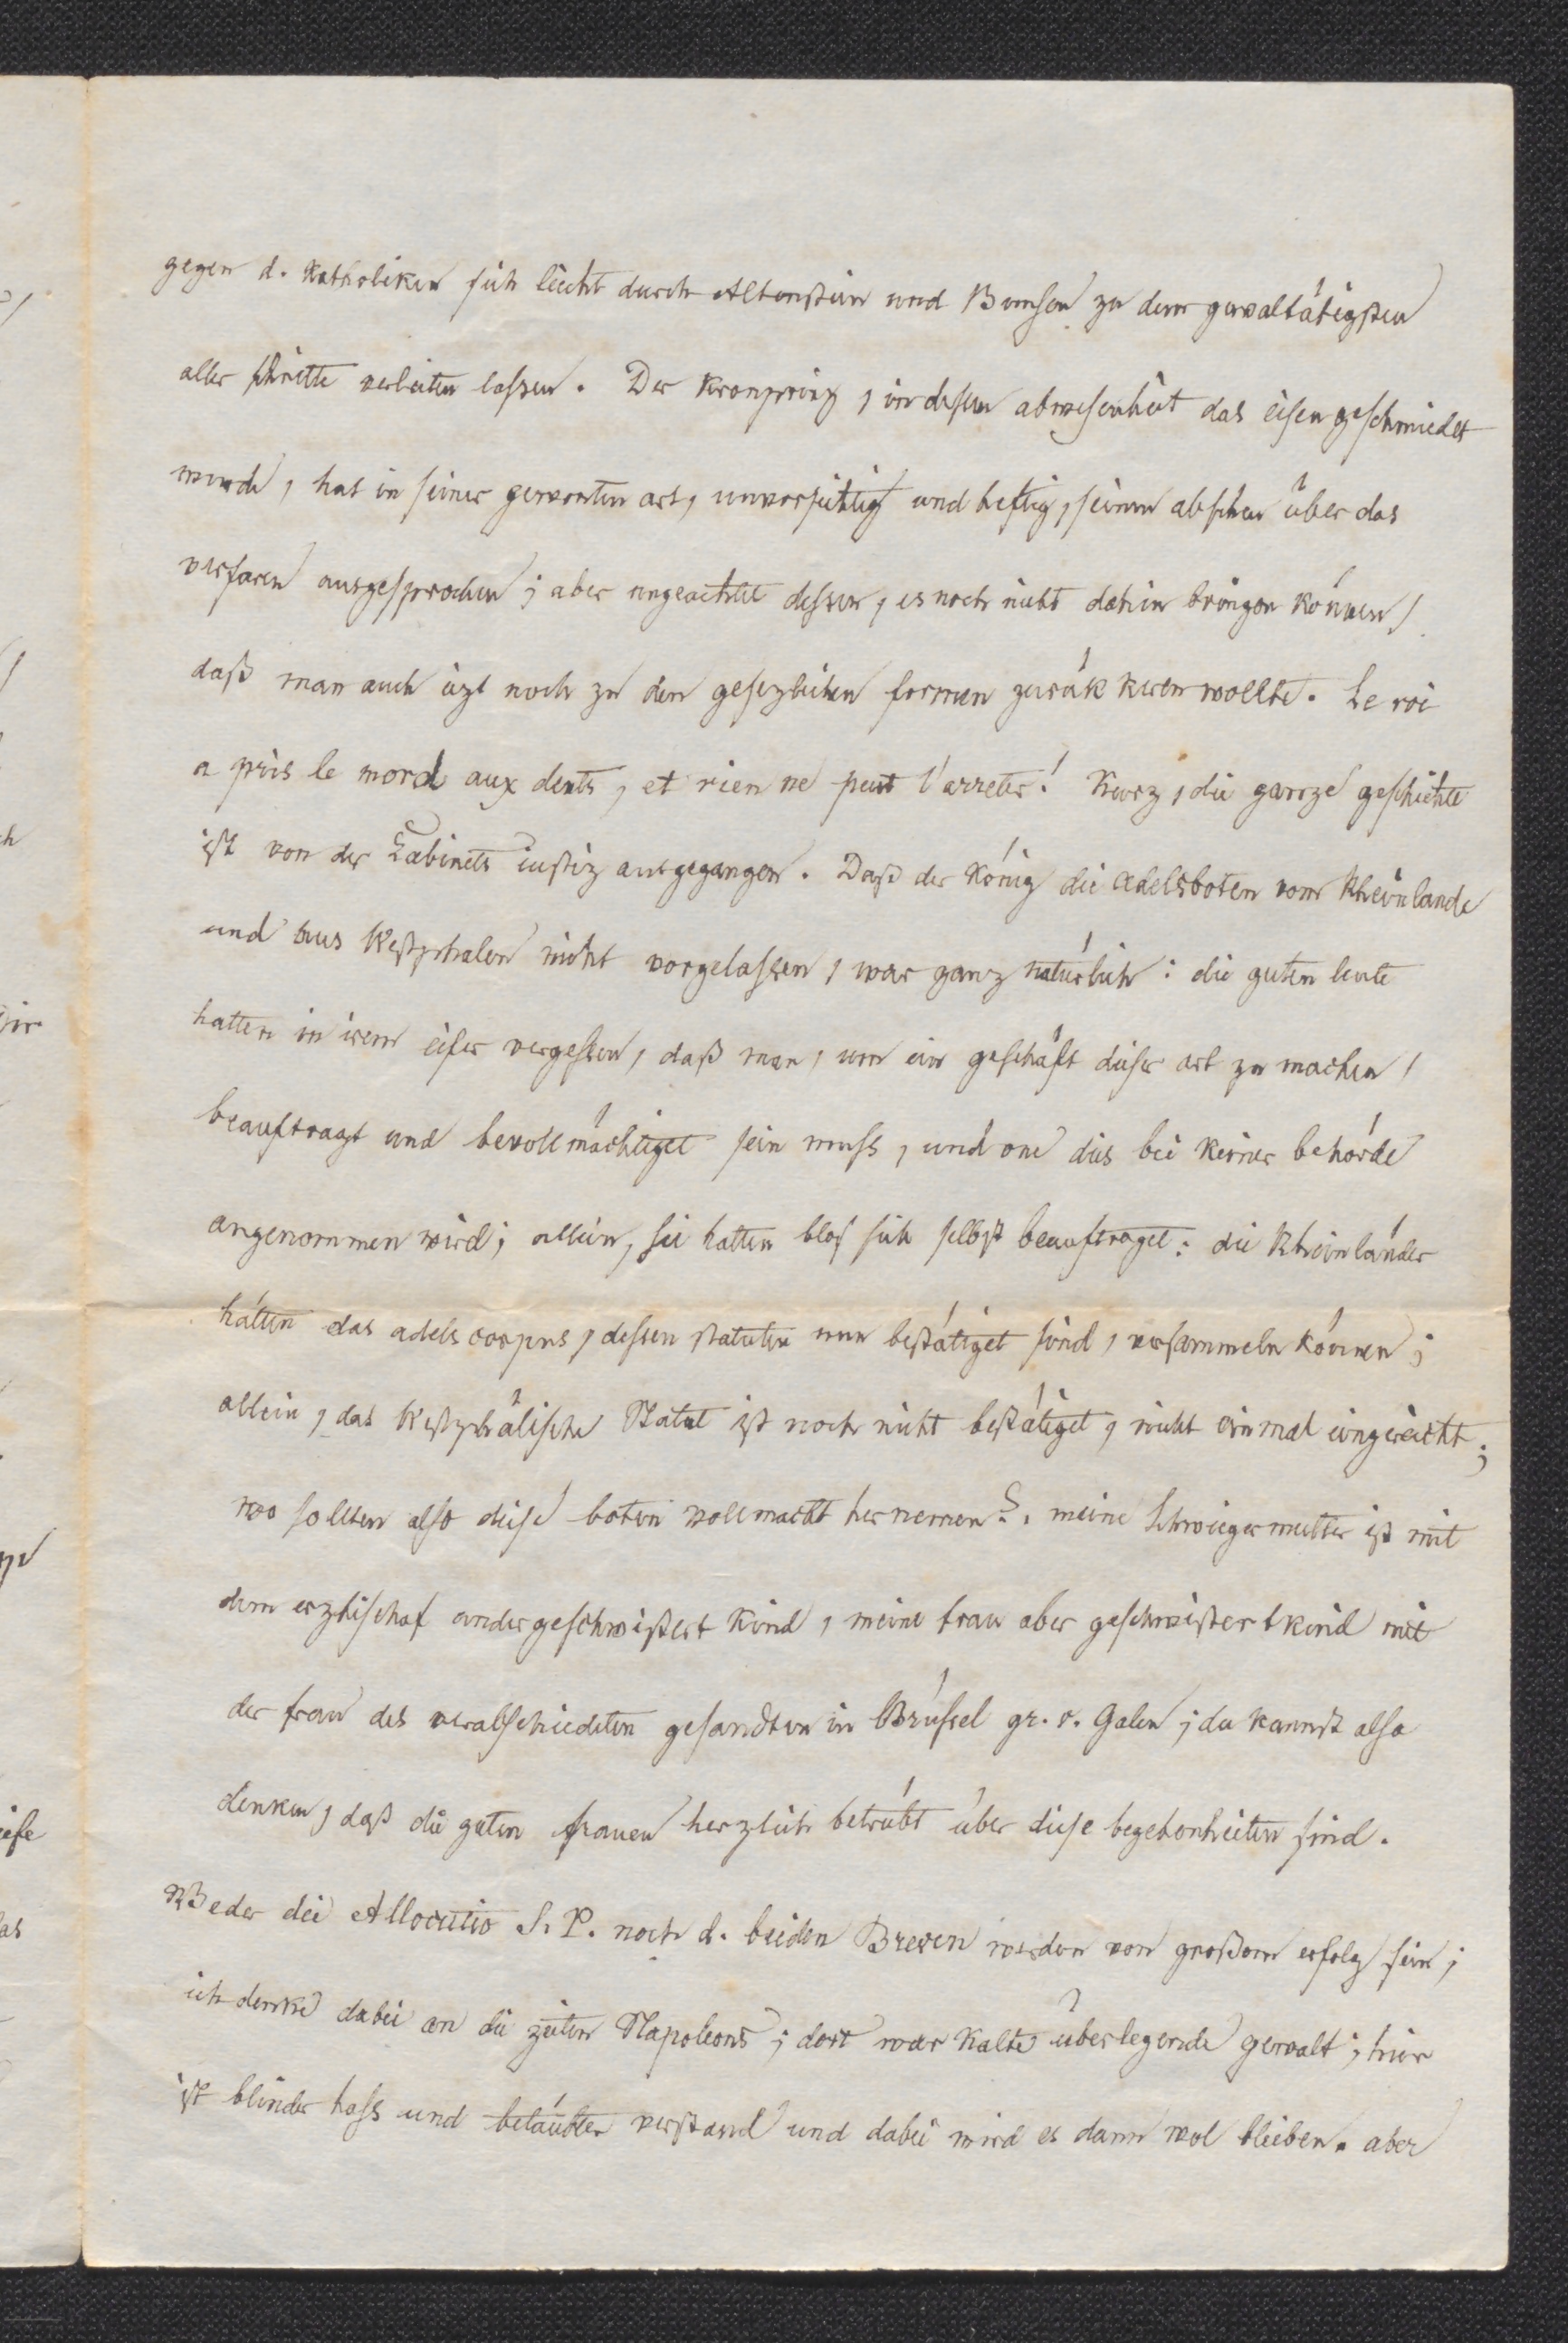 gegen d. Katholiken sich leicht durch Altenstein und Bunsen zu dem gewaltätigsten
aller schritte verleiten lassen. Der Kronprinz, in dessen abwesenheit das eisen geschmiedet
wurde, hat in seiner gewonten art, unvorsichtig und heftig, seinen abscheu über das
verfaren ausgesprochen; aber ungeachtet dessen, es noch nicht dahin bringen können,
daß man auch izt noch zu den gesezlichen formen zurük keren wollte. Le roi
a pris le mord aux dents, et rien ne peut l'arreter! Kurz, die ganze geschichte
ist von der Cabinets iustiz ausgegangen. Daß der König die Adelsboten vom Rheinlande
und aus Westphalen nicht vorgelassen, war ganz natürlich: die guten leute
hatten in irem eifer vergessen, daß man, um ein geschäft dieser art zu machen,
beauftragt und bevollmächtiget sein muss, und one dies bei keiner behörde
angenommen wird; allein, sie hatten blos sich selbst beauftraget: die Rheinländer
hätten das adels corpus, dessen statuten nun bestätiget sind, versammeln können;
allein, das Westphälische Statut ist noch nicht bestätiget, nicht einmal eingereicht;
wo sollten also diese boten vollmacht hernemen?. meine Schwiegermutter ist mit
dem erzbischof andergeschwistert kind, meine frau aber geschwistertkind mit
der frau des verabschiedeten gesandten in Brüssel gr. v. Galen; du kannst also
denken, daß die guten frauen herzlich betrübt über diese begebenheiten sind.
Weder die Allocutio S. P. noch d. beiden Breven werden von großem erfolg sein;
ich denke dabei an die zeiten Napoleons; dort war kalte überlegende gewalt; hier
ist blinder hass und betäubter verstand und dabei wird es dann wol bleiben. aber